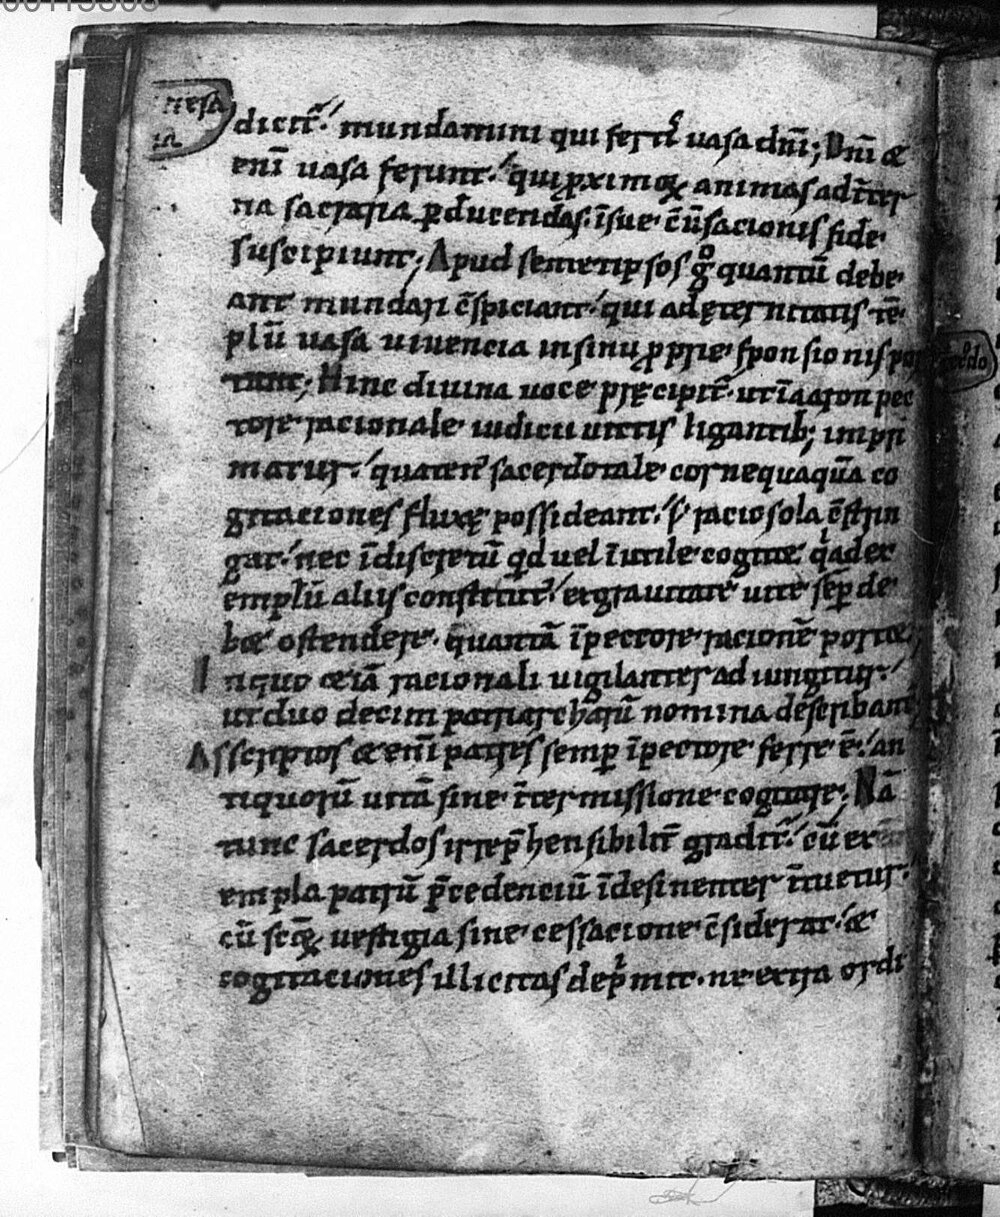 dicit̃. mundamini qui fertis uasa dñi; Dñi &
enĩ uasa ferunt. qui ꝓximoꝝ animas ad ĩter
na sacraria ꝑducendas. ĩ sue c̃ũsacionis fide
suscipiunt; Apud semetipsos gͦ quantũ debe
ant mundari c̃spiciant. qui ad ęternitatis tẽ
plũ uasa uiuencia in sinu ꝓprie sponsionis por
tant; Hinc diuina uoce pręcipit̃. ut ĩ aaron pec
tore racionale iudicii uittis ligantib; impri
matur. quaten᾽ sacerdotale cor nequaquã co
gitaciones fluxę possideant. s; racio sola c̃strin
gat. nec ĩdiscretũ qd uel ĩutile cogit&. qͥ ad ex
emplũ aliis constitut᾽. et grauitate uite sẽꝑ de
b& ostendere. quantã ĩ pectore racionẽ port&;
In quo & iã racionali uigilanter adiungitur.
ut duodecim patriarcharũ nomina describant᾽
Asscriptos & enĩ patres semꝑ ĩ pectore ferre ẽ. an
tiquorũ uitã sine ĩtermissione cogitare; Nã
tunc sacerdos irrep̃hensibilit̃ gradit̃. cũ ex
empla patrũ p̃cedenciũ ĩdesinenter ĩtuetur.
cũ sc̃oꝝ uestigia sine cessacione c̃siderat. &
cogitaciones illicitas depͥmit. ne extra ordi